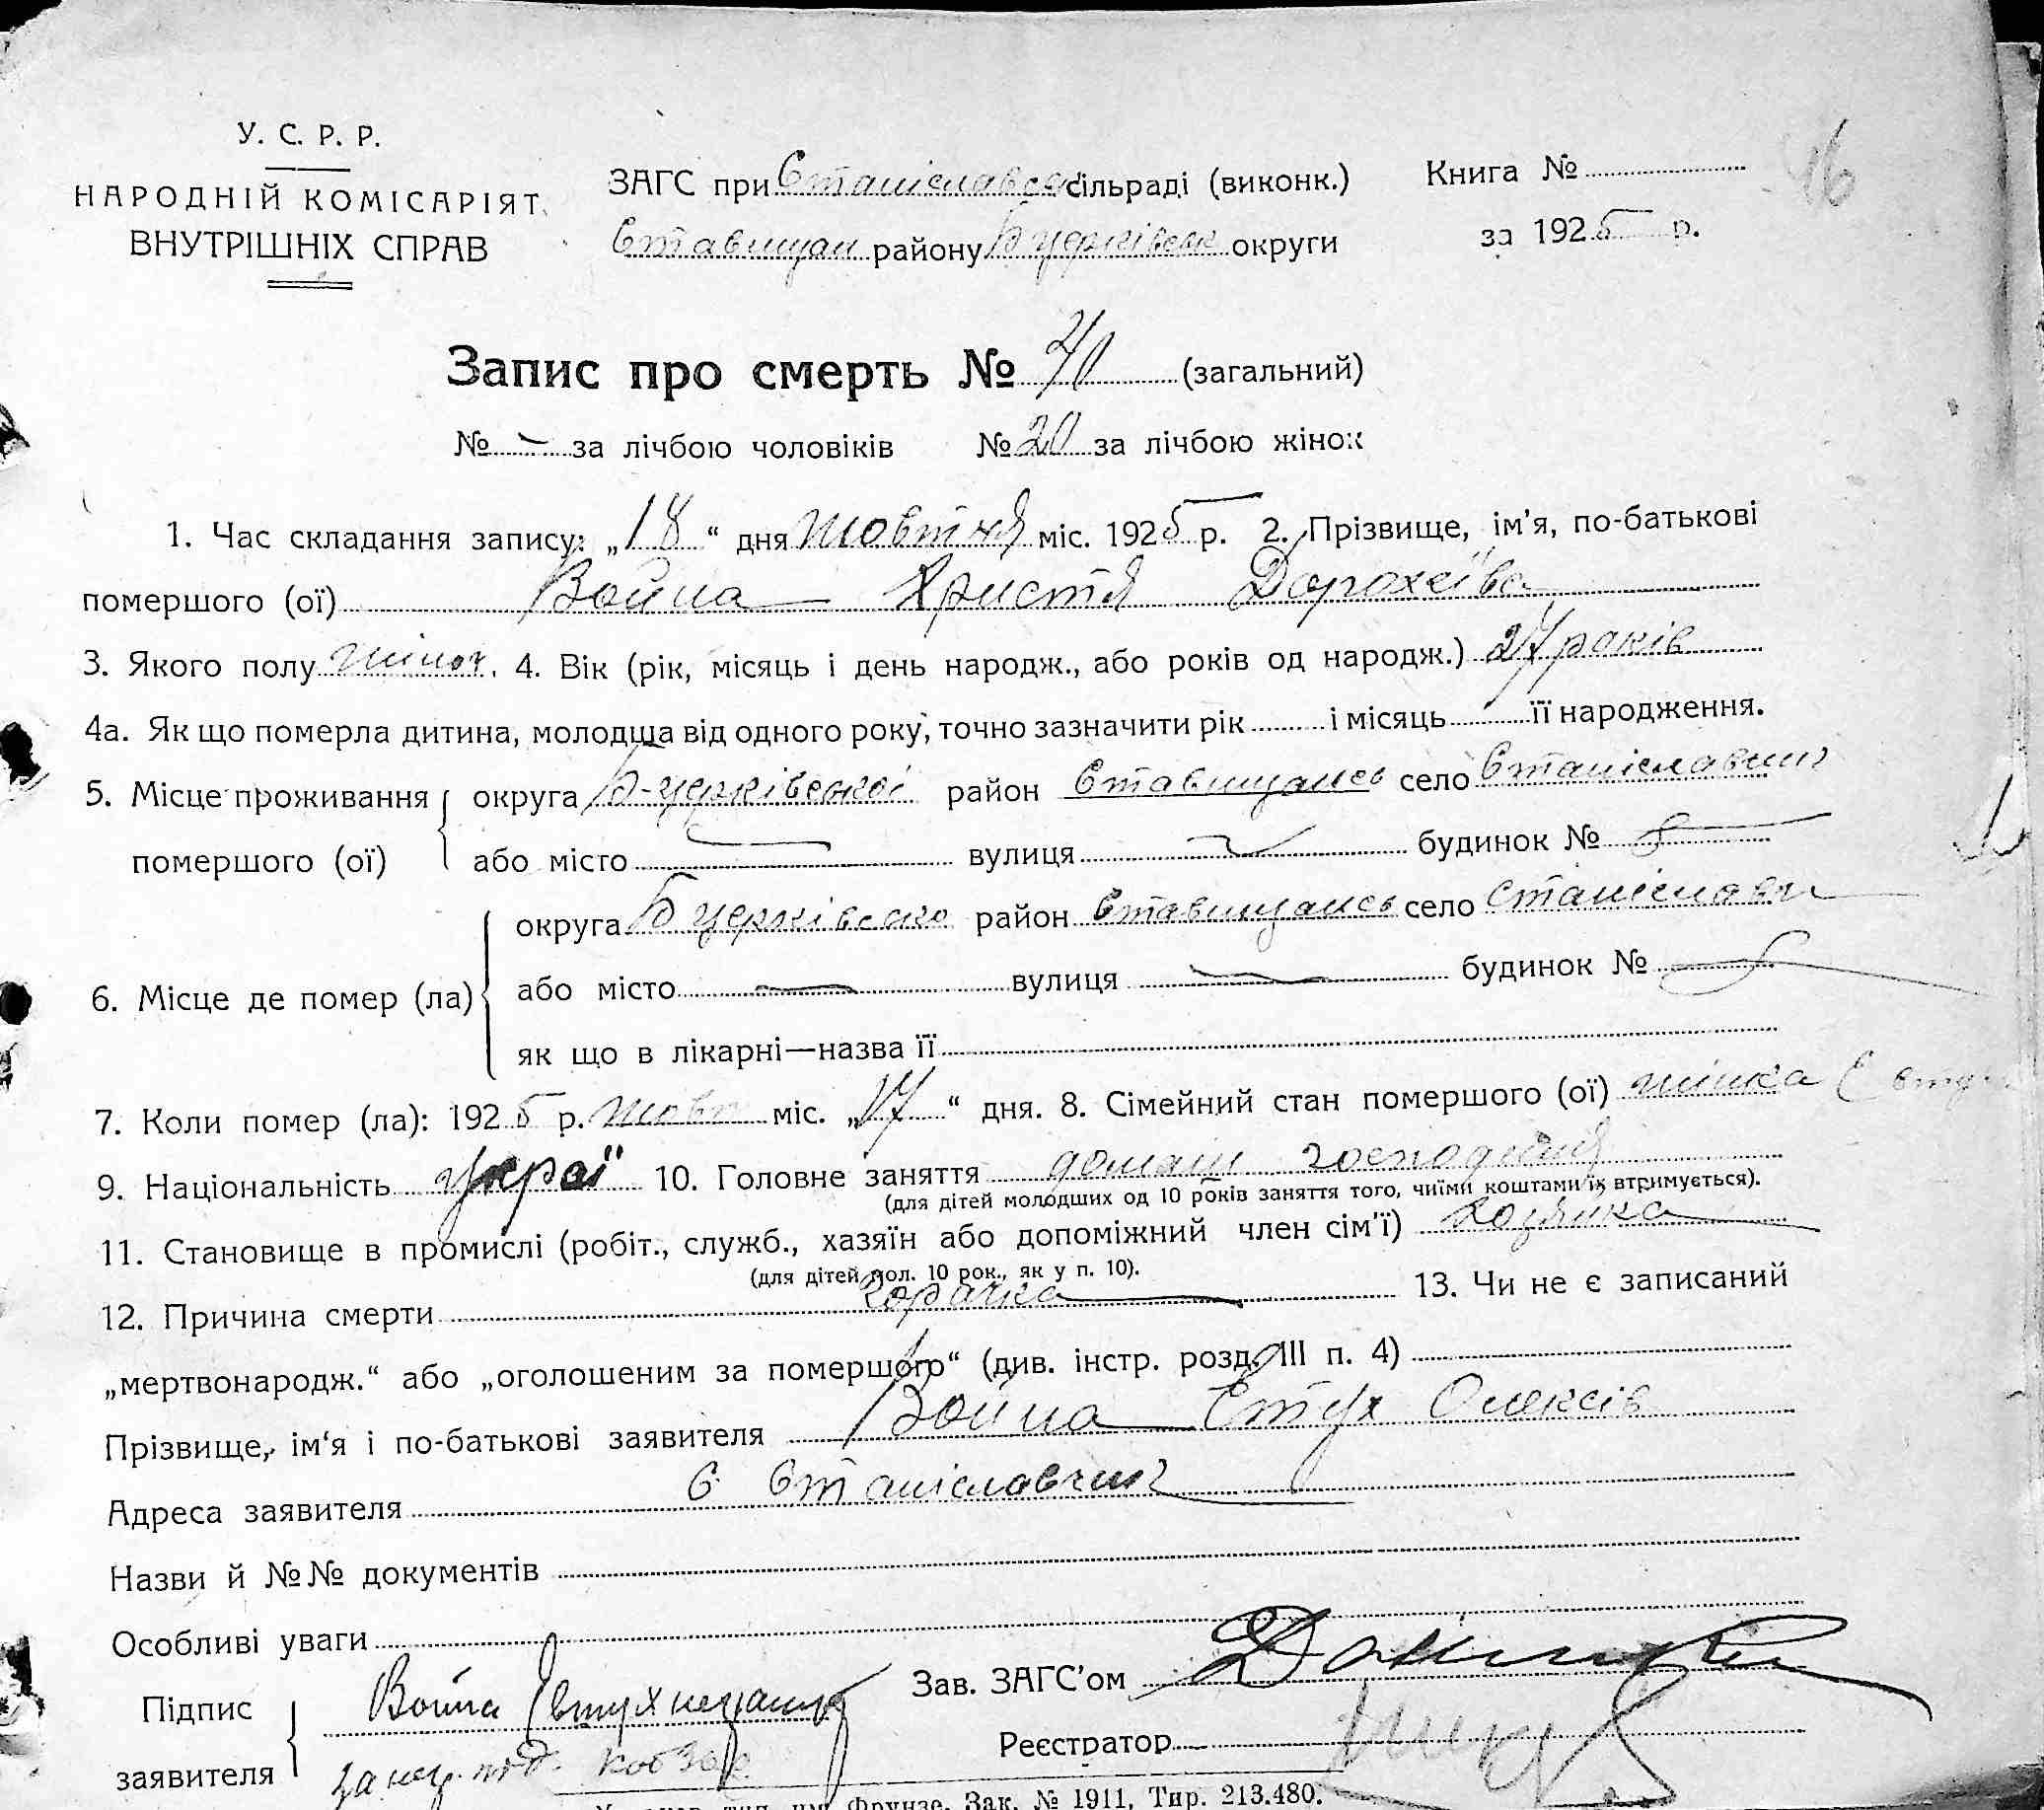 46
У. С. Р. Р.
НАРОДНІЙ КОМІСАРІЯТ
ВНУТРІШНІХ СПРАВ
ЗАГС при Станіславсь сільраді (виконк.)
Ставищан району Б церківськ округи
Книга №
за 1925 р.
Запис про смерть № 40 (загальний)
№ — за лічбою чоловіків № 20 за лічбою жінок
1. Час складання запису: „18“ дня жовтня міс. 1925 р. 2. Прізвище, ім'я, по-батькові
помершого (ої) Война Христя Дорохеїва
3. Якого полу жіноч. 4. Вік (рік, місяць і день народж., або років од народж.) 27 років
4а. Як що померла дитина, молодша від одного року, точно зазначити рік і місяць її народження.
5. Місце проживання помершого (ої) округа Б-церківської район Ставищансь село Станіславчик
або місто — вулиця — будинок №
6. Місце де помер (ла) округа Б церківсько район Ставищансь село Станіславч
або місто — вулиця — будинок №
як що в лікарні—назва її
7. Коли помер (ла): 1925 р. жовт міс. „17“ дня. 8. Сімейний стан помершого (ої) жінка Євту
9. Національність украї 10. Головне заняття домаш господиня
(для дітей молодших од 10 років заняття того, чиїми коштами їх втримується).
11. Становище в промислі (робіт., служб., хазяїн або допоміжний член сім'ї) хозяйка
(для дітей мол. 10 рок., як у п. 10).
12. Причина смерти горячка 13. Чи не є записаний
„мертвонародж.“ або „оголошеним за помершого“ (див. інстр. розд. III п. 4)
Прізвище, ім'я і по-батькові заявителя Война Євтух Олексів
Адреса заявителя с Станіславчик
Назви й №№ документів
Особливі уваги
Підпис заявителя Война Євтух неграмот
за негр. під. Кобзар
Зав. ЗАГС'ом
Реєстратор
Фрунзе. Зак. № 1911. Тир. 213.480.